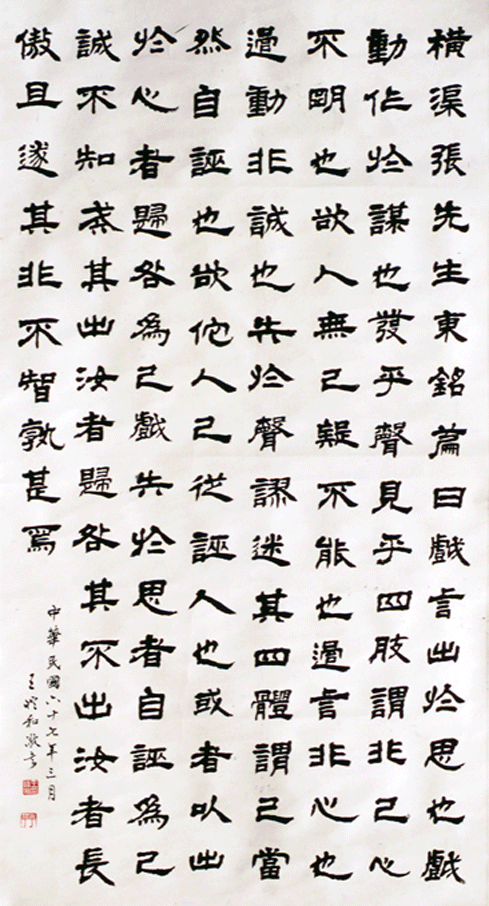 橫渠張先生東銘篇曰戲言出於思也戲
動作於謀也發乎聲見乎四肢謂非己心
不明也欲人無己疑不能也過言非心也
過動非誠也失於聲謬迷其四體謂己當
然自誣也欲佗人己從誣人也或者以出
於心者歸咎為己戲失於思者自誣為己
誠不知戒其出汝者歸咎其不出汝者長
傲且遂其非不智孰甚焉
中華民國六十七年三月
王愷和敬書